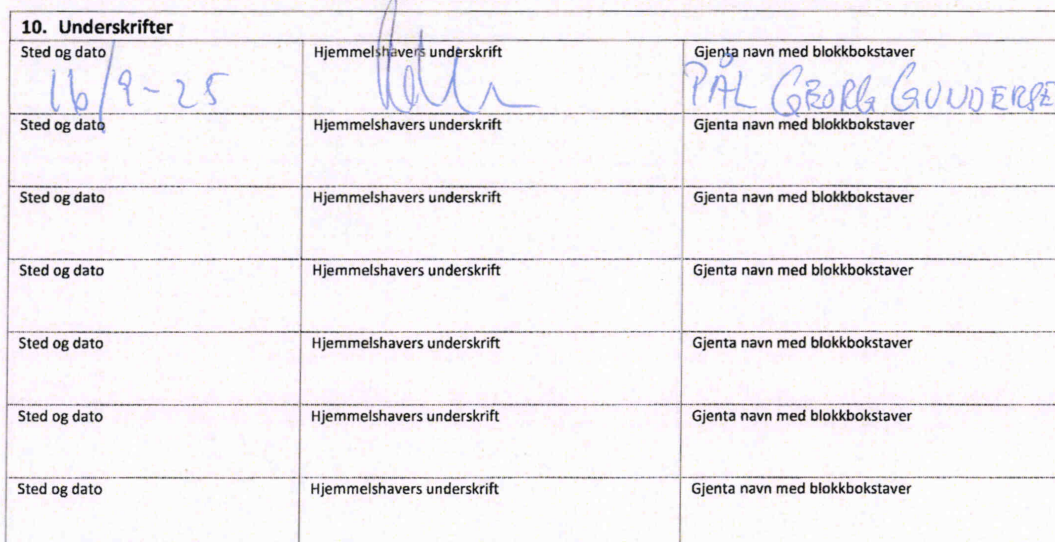 10. Underskrifter
Sted og dato Hjemmelshavers underskrift Gjenta navn med blokkbokstaver
16/9-25 PÅL GEORG GUNDERSE
Sted og dato Hjemmelshavers underskrift Gjenta navn med blokkbokstaver
Sted og dato Hjemmelshavers underskrift Gjenta navn med blokkbokstaver
Sted og dato Hjemmelshavers underskrift Gjenta navn med blokkbokstaver
Sted og dato Hjemmelshavers underskrift Gjenta navn med blokkbokstaver
Sted og dato Hjemmelshavers underskrift Gjenta navn med blokkbokstaver
Sted og dato Hjemmelshavers underskrift Gjenta navn med blokkbokstaver